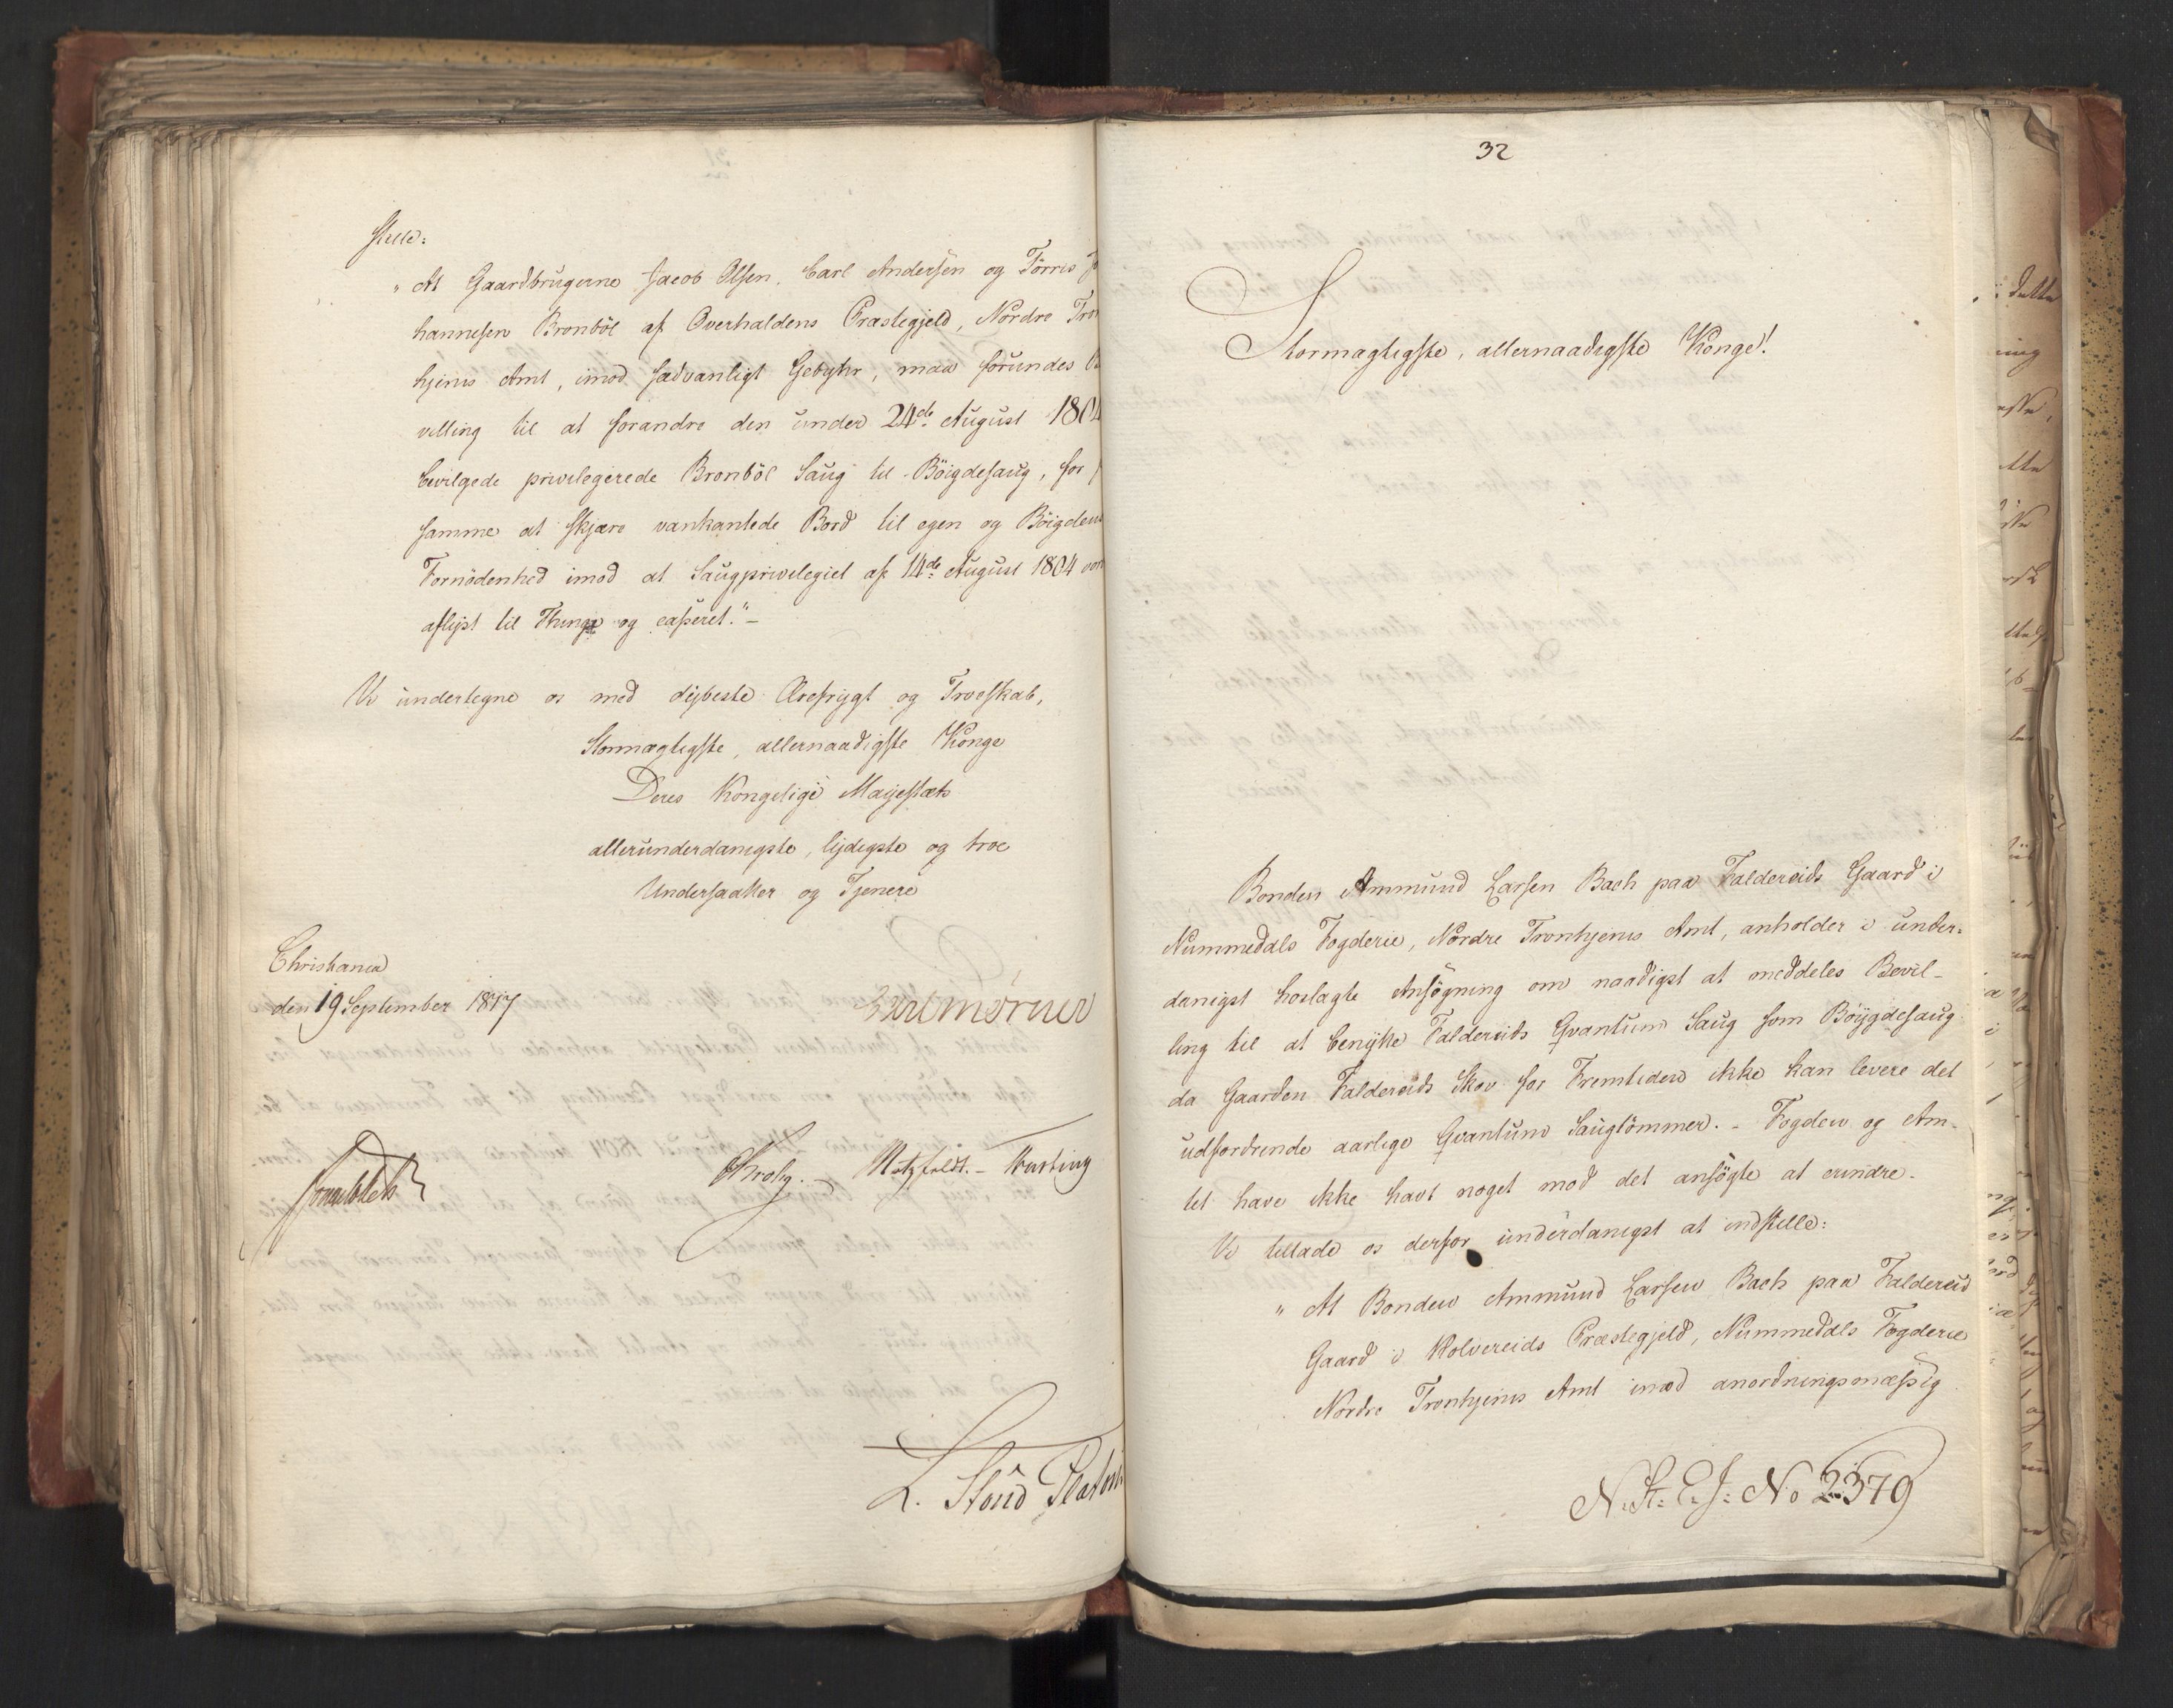 stille:
„At Gaardbrugerne Jacob Olsen, Carl Andersen og Törris Jo
hannesen Bronböl af Overhaldens Præstegjeld, Nordre Tron
hjems Amt, imod sædvanligt Gebyhr, maa forundes Be
villing til at forandre den under 24de August 1804
bevilgede privilegerede Bronböl Saug til Böigdesaug, for
samme at skjære vankantede Bord til egen og Böigdens
Fornödenhed imod at Saugprivilegiet af 14de August 1804 vor
aflyst til Thinge og casseret." -
Vi undertegne os med dybeste Ærefrygt og Troeskab,
Stormægtigste, allernaadigste Konge
Deres Kongelige Majestæts
allerunderdanigste, lydigste og troe
Undersaatter og Tjenere
Christiania
den 19 September 1817
Carl Mörner
Sommerfeldt
Krohg. Motzfeldt. - Hersting
L. Stoud Platou
32
Stormægtigste, allernaadigste Konge!
Bonden Ammund Larsen Bach paa Faldereids Gaard i
Nummedals Fogderie, Nordre Tronhjems Amt, anholder i under-
danigst hoslagte Ansögning om naadigst at meddeles Bevil-
ling til at benytte Faldereids Qvantum Saug som Böygdesaug
da Gaarden Faldereids Skov for Fremtiden ikke kan levere det
udfordrende aarlige Qvantum Saugtömmer. - Fogden og Am-
tet have ikke havt noget mod det ansögte at erindre.
Vi tillade os derfor underdanigst at indstille:
„At Bonden Ammund Larsen Bach paa Faldereid
Gaard i Kolvereids Præstegjeld, Nummedals Fogderie
Nordre Tronhjems Amt imod anordningsmæssig
N. St: E. J: No 2379